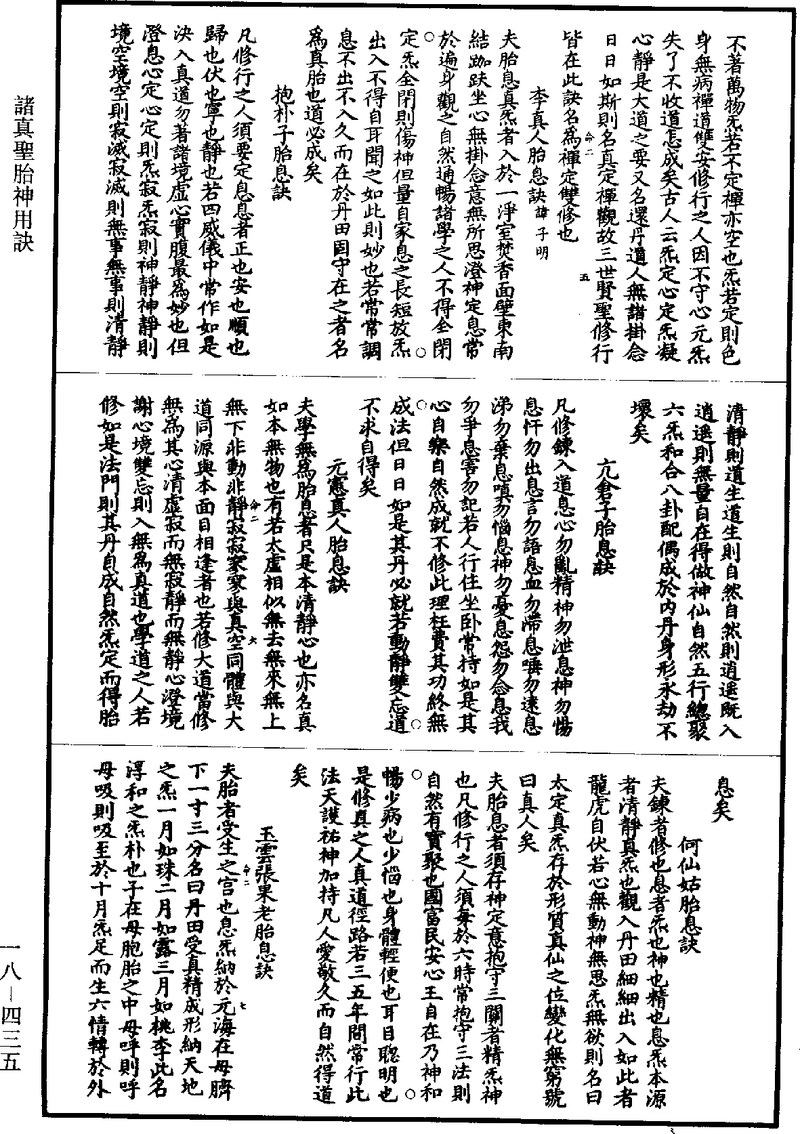 諸真聖胎神用訣
不著萬物炁若不定禪亦空也炁若定則色
身無病禪道雙安修行之人因不守心元炁
失了不收道怎成矣古人云炁定心定炁凝
心靜是大道之要又名還丹道人無諸掛念
日日如斯則名真定禪觀故三世賢聖修行
皆在此訣名為禪定雙修也
李真人胎息訣諱子明
夫胎息真炁者入於一淨室焚香面壁東南
結跏趺坐心無掛念意無所思澄神定息常
於遍身觀之自然通暢諸學之人不得全閉
定炁全閉則傷神但量自家息之長短放炁
出入不得自耳聞之如此則妙也若常常調
息不出不入久而在於丹田固守在之者名
為真胎也道必成矣
抱朴子胎息訣
凡修行之人須要定息息者正也安也順也
歸也伏也寧也靜也若四威儀中常作如是
決入真道勿著諸境虛心實腹最為妙也但
澄息心定心定則炁寂炁寂則神靜神靜則
境空境空則寂滅寂滅則無事無事則清靜
清靜則道生道生則自然自然則逍遥既入
逍遥則無量自在得做神仙自然五行總聚
六炁和合八卦配偶成於內丹身形永劫不
壞矣
亢倉子胎息訣
凡修鍊入道息心勿亂精神勿泄息神勿惕
息忓勿出息言勿語息血勿滯息唾勿遠息
涕勿棄息嗔勿惱息神勿憂息怨勿念息我
勿爭息害勿記若人行住坐卧常持如是其
心自樂自然成就不修此理枉費其功終無
成法但日日如是其丹必就若動靜雙忘道
不求自得矣
元憲真人胎息訣
夫學無為胎息者只是本清靜心也亦名真
如本無物也有若太虛相似無去無來無上
無下非動非靜寂寂寥寥與真空同體與大
道同源與本面目相逢者也若修大道當修
無為其心清虛寂而無寂靜而無靜心澄境
謝心境雙忘則入無為真道也學道之人若
修如是法門則其丹自成自然炁定而得胎
息矣
何仙姑胎息訣
夫鍊者修也息者炁也神也精也息炁本源
者清靜真炁也觀入丹田細細出入如此者
龍虎自伏若心無動神無思炁無欲則名曰
太定真炁存於形質真仙之位變化無窮號
曰真人矣
夫胎息者須存神定意抱守三關者精炁神
也凡修行之人須每於六時常抱守三法則
自然有寶聚也國富民安心王自在乃神和
暢少病也少惱也身體輕便也耳目聰明也
是修真之人真道徑路若三五年間常行此
法天護祐神加持凡人愛敬久而自然得道
矣
玉雲張果老胎息訣
夫胎者受生之宮也息炁納於元海在母臍
下一寸三分名曰丹田受真精成形納天地
之炁一月如珠二月如露三月如桃李此名
淳和之炁朴也子在母胞胎之中母呼則呼
母吸則吸至於十月炁足而生六情轉於外
一八—四三五